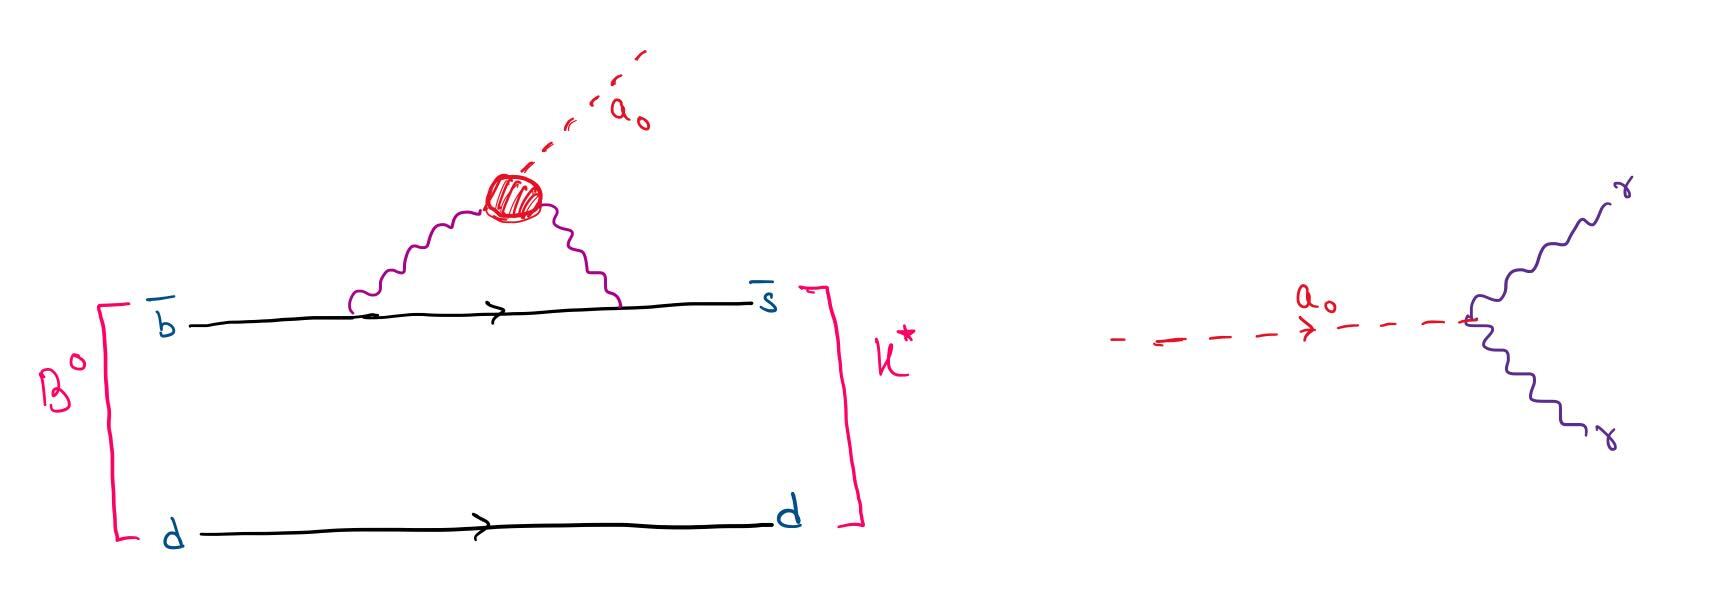 a₀
b̅
s̅
B⁰
K*
d
d
a₀
γ
γ